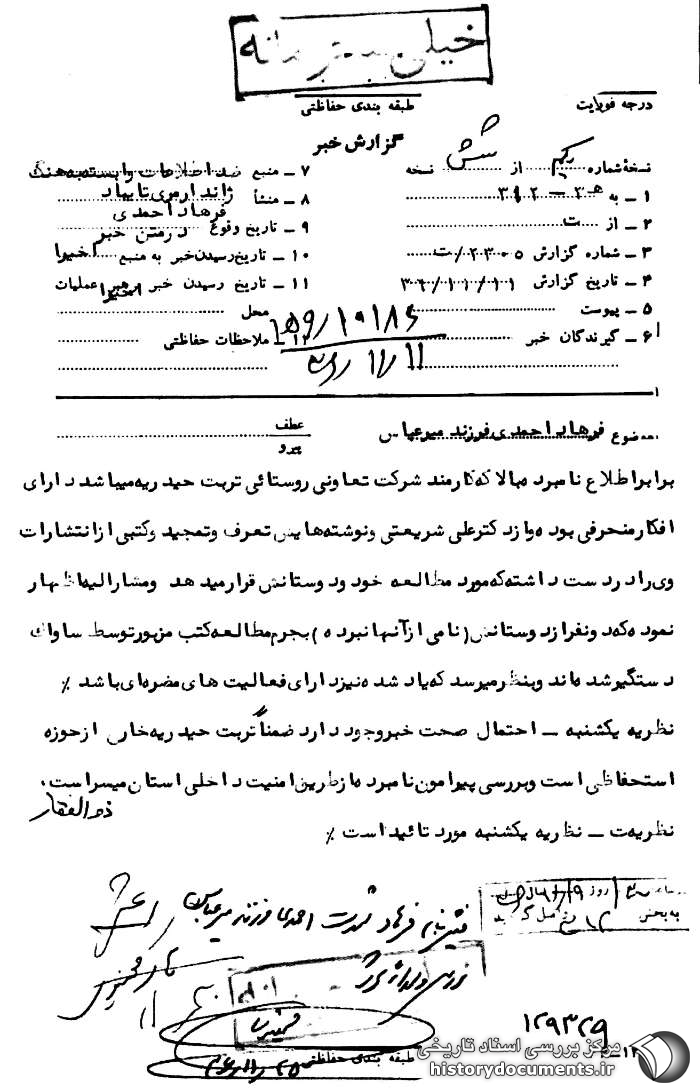 خیلی محرمانه
درجه فوریت
طبقه بندی حفاظتی
گزارش خبر
نسخهٔ شماره یکم از شش نسخه
۱ ـ به ۳۱۲ – ۳ ه
۲ ـ از ت
۳ ـ شماره گزارش ۲۳۰۵ / ت
۴ ـ تاریخ گزارش ۳۶/۱۱/۱۱
۵ ـ پیوست
۶ ـ گیرندگان خبر
۷ ـ منبع ضد اطلاعات وابسته به هنگ
ژاندارمری تایباد
۸ ـ منشأ فرهاد احمدی
۹ ـ تاریخ وقوع درمتن خبر
۱۰ ـ تاریخ رسیدن خبر به منبع اخیرا
۱۱ ـ تاریخ رسیدن خبر رهبر عملیات اخیرا
محل
۱۲ ـ ملاحظات حفاظتی
۵۹/۱۰۱۸۶
۱۱/۱۱
موضوع فرهاد احمدی فرزند میرعباس
عطف
پیرو
برابر اطلاع نامبرده بالا که کارمند شرکت تعاونی روستائی تربت حیدریه میباشد دارای
افکار منحرفی بوده و از دکتر علی شریعتی و نوشته هایش تعرف و تمجید و کتبی از انتشارات
وی را در دست داشته که مورد مطالعه خود و دوستانش قرار میدهد و مشارالیه اظهار
نموده که دو نفر از دوستانش (نامی از آنها نبرده) بجرم مطالعه کتب مزبور توسط ساواک
دستگیر شده اند و بنظر میرسد که یاد شده نیز دارای فعالیت های مضره ای باشد ٪
نظریه یکشنبه ـ احتمال صحت خبر وجود دارد ضمناً تربت حیدریه خارج از حوزه
استحفاظی است و بررسی پیرامون نامبرده از طریق امنیت داخلی استان میسر است.
ذوالفقار
نظریه ت ـ نظریه یکشنبه مورد تائید است ٪
فرهاد شهرت احمدی فرزند میرعباس
روز
۳۱۲
۱۲۹۳۲۹
طبقه بندی حفاظتی
مرکز بررسی اسناد تاریخی
historydocuments.ir